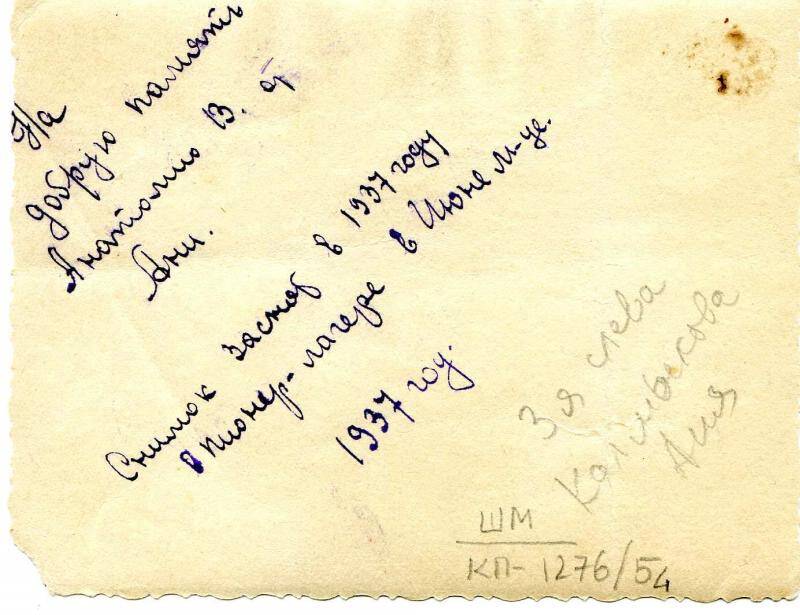 На
добрую память
Анатолию В. от
Ани.
Снимок заснят в 1937 году
в пионер-лагере в Июне м-це.
1937 год.
3я слева
Калмыкова
Аня
ШМ
КП-1276/54